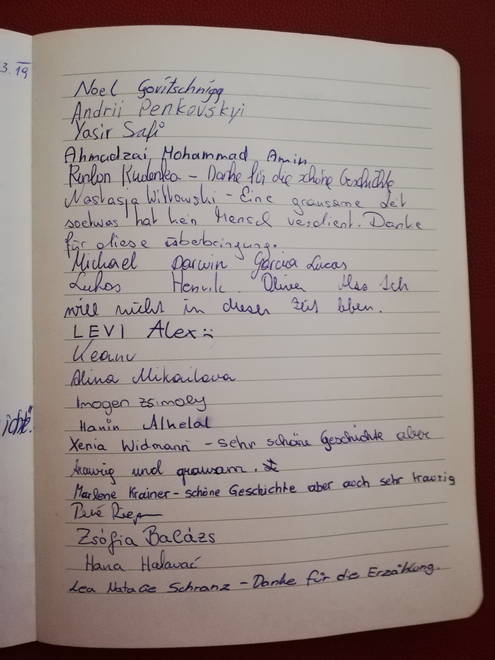 3. 19
Noel Govitschnigg
Andrii Penkovskyi
Yasir Safi
Ahmadzai Mohammad Amin
Kudenko - Danke für die schöne Geschichte
Nastasja Witkowski - Eine grausame Zeit
soetwas hat kein Mensch verdient. Danke
für diese
Michael Darwin Garcia Lucas
Lukas Henrik Oliver Also Ich
will nicht in dieser Zeit leben.
LEVI Alex
Keanu
Alina Mikailova
Imogen Zsimoly
Hanin Alhelal
Xenia Widmann - sehr schöne Geschichte aber
traurig und grausam.
Marlene Krainer - schöne Geschichte aber auch sehr traurig
Zsófia Balázs
Hana Halavač
Lea Natalie Schranz - Danke für die Erzählung.